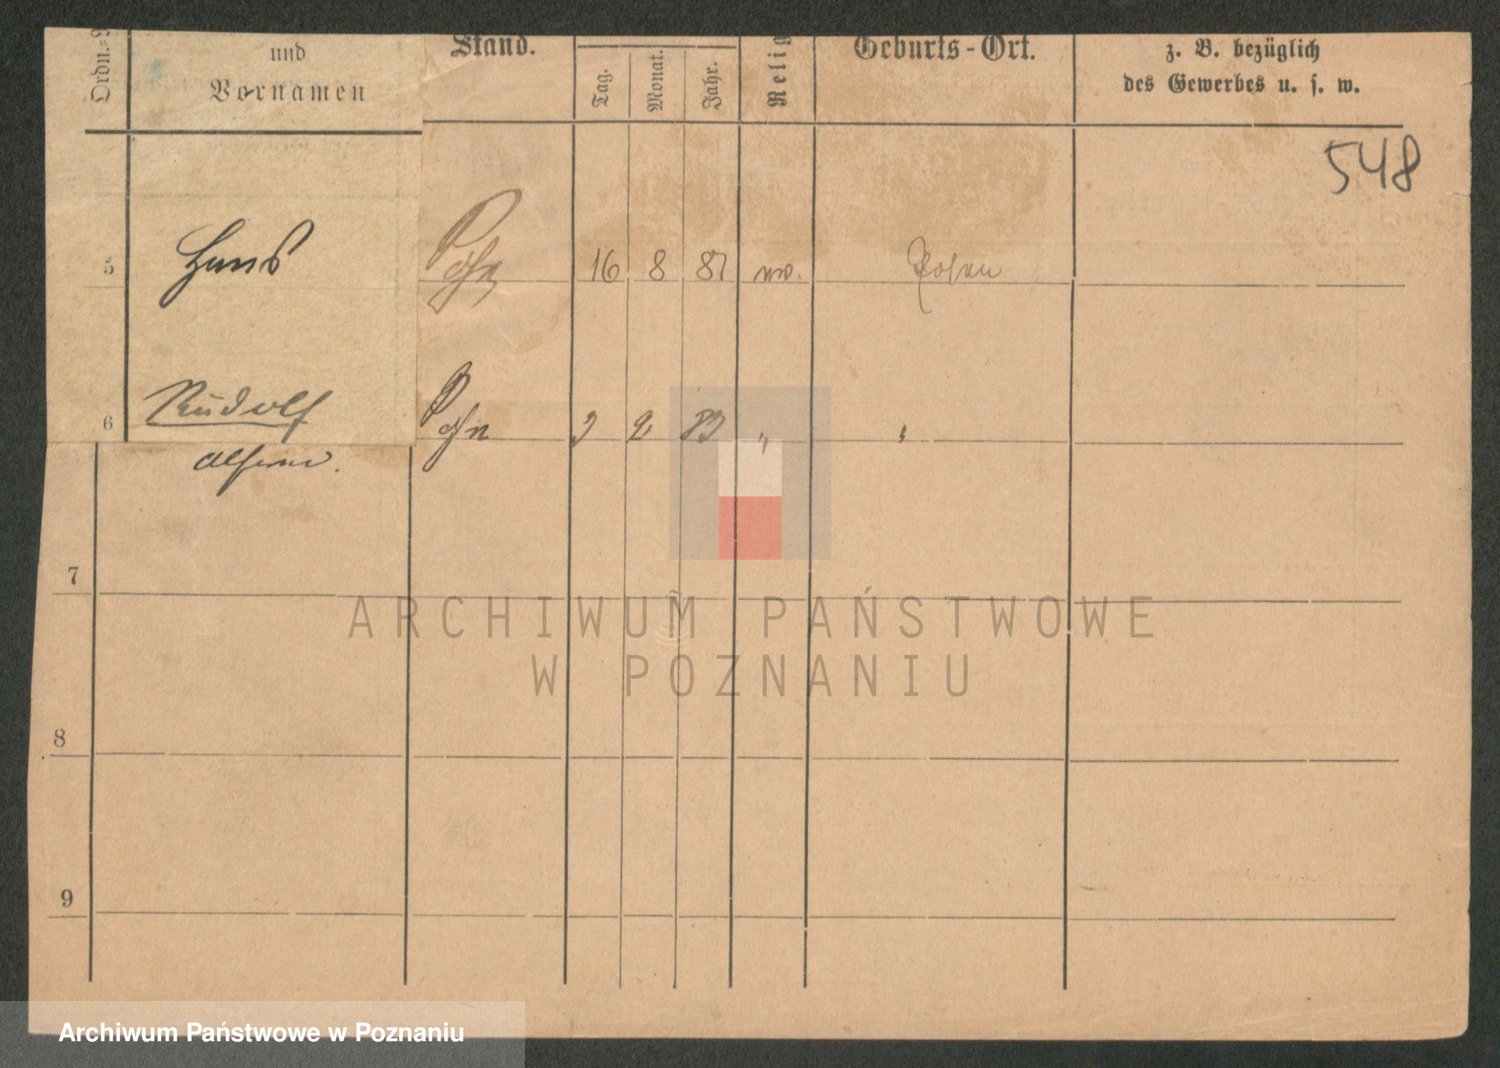 Ordn.= und Vornamen Stand. Tag. Monat. Jahr. Relig Geburts-Ort. z. B. bezüglich
des Gewerbes u. s. w.
548
5 Hans Sohn 16 8 81 mo. Posen
6 Rudolf Sohn 3 2 83 " "
7
ARCHIWUM PAŃSTWOWE
W POZNANIU
8
9
Archiwum Państwowe w Poznaniu